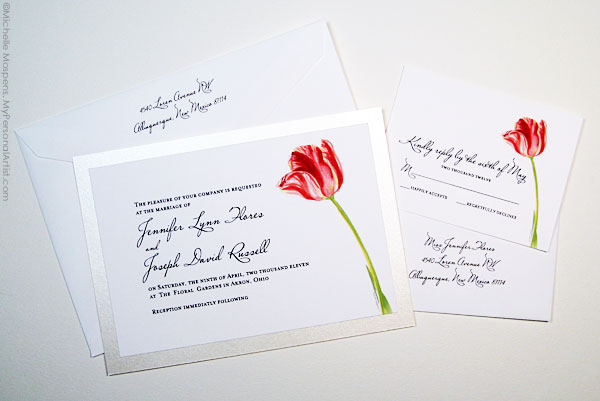 ©Michelle Mospens, MyPersonalArtist.com
4540 Loren Avenue NW
Albuquerque, New Mexico 87114
The pleasure of your company is requested
at the marriage of
Jennifer Lynn Flores
and
Joseph David Russell
on Saturday, the ninth of April, two thousand eleven
at The Floral Gardens in Akron, Ohio
Reception immediately following
Kindly reply by the sixth of May,
two thousand twelve
M
happily accepts regretfully declines
Miss Jennifer Flores
4540 Loren Avenue NW
Albuquerque, New Mexico 87114